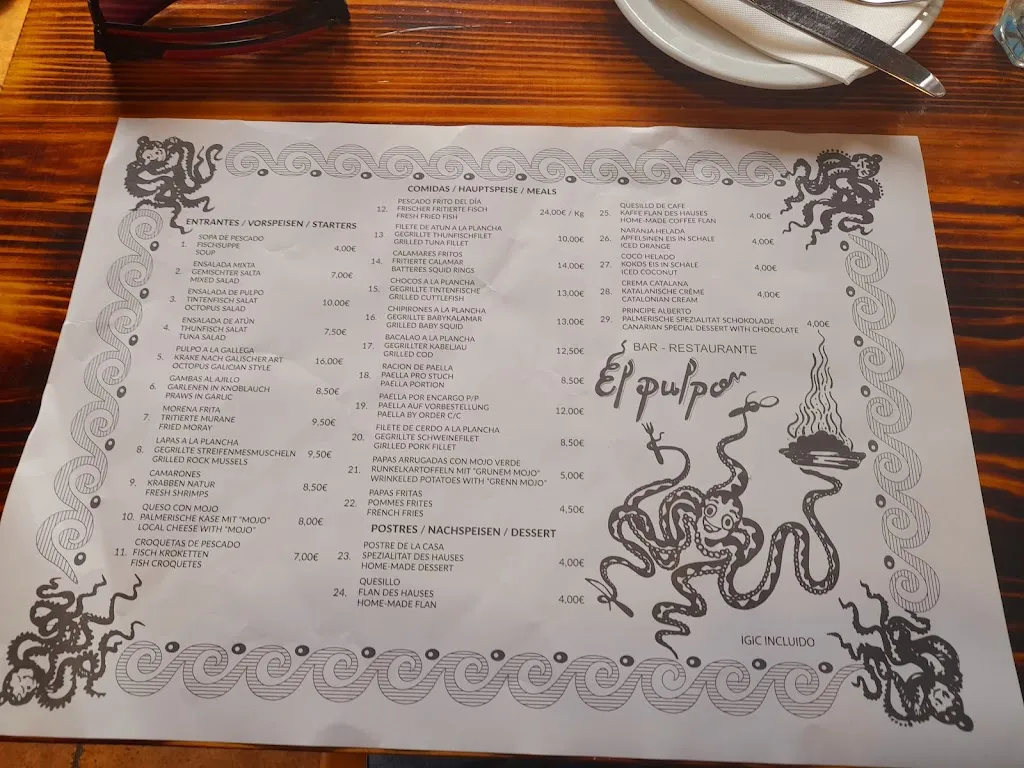 ENTRANTES / VORSPEISEN / STARTERS
1. SOPA DE PESCADO
FISCHSUPPE 4,00€
SOUP
2. ENSALADA MIXTA
GEMISCHTER SALTA 7,00€
MIXED SALAD
3. ENSALADA DE PULPO
TINTENFISCH SALAT 10,00€
OCTOPUS SALAD
4. ENSALADA DE ATÚN
THUNFISCH SALAT 7,50€
TUNA SALAD
5. PULPO A LA GALLEGA
KRAKE NACH GALISCHER ART 16,00€
OCTOPUS GALICIAN STYLE
6. GAMBAS AL AJILLO
GARLENEN IN KNOBLAUCH 8,50€
PRAWS IN GARLIC
7. MORENA FRITA
TRITIERTE MURANE 9,50€
FRIED MORAY
8. LAPAS A LA PLANCHA
GEGRILLTE STREIFENMESMUSCHELN 9,50€
GRILLED ROCK MUSSELS
9. CAMARONES
KRABBEN NATUR 8,50€
FRESH SHRIMPS
10. QUESO CON MOJO
PALMERISCHE KASE MIT "MOJO" 8,00€
LOCAL CHEESE WITH "MOJO"
11. CROQUETAS DE PESCADO
FISCH KROKETTEN 7,00€
FISH CROQUETES
COMIDAS / HAUPTSPEISE / MEALS
12. PESCADO FRITO DEL DÍA
FRISCHER FRITIERTE FISCH 24,00€ / Kg
FRESH FRIED FISH
13. FILETE DE ATUN A LA PLANCHA
GEGRILLTE THUNFISCHFILET 10,00€
GRILLED TUNA FILLET
14. CALAMARES FRITOS
FRITIERTE CALAMAR 14,00€
BATTERES SQUID RINGS
15. CHOCOS A LA PLANCHA
GEGRILLTE TINTENFISCHE 13,00€
GRILLED CUTTLEFISH
16. CHIPIRONES A LA PLANCHA
GEGRILLTE BABYKALAMAR 13,00€
GRILLED BABY SQUID
17. BACALAO A LA PLANCHA
GEGRILLTER KABELJAU 12,50€
GRILLED COD
18. RACION DE PAELLA
PAELLA PRO STUCH 8,50€
PAELLA PORTION
19. PAELLA POR ENCARGO P/P
PAELLA AUF VORBESTELLUNG 12,00€
PAELLA BY ORDER C/C
20. FILETE DE CERDO A LA PLANCHA
GEGRILLTE SCHWEINEFILET 8,50€
GIRLLED PORK FILLET
21. PAPAS ARRUGADAS CON MOJO VERDE
RUNKELKARTOFFELN MIT "GRUNEM MOJO" 5,00€
WRINKELED POTATOES WITH "GRENN MOJO"
22. PAPAS FRITAS
POMMES FRITES 4,50€
FRENCH FRIES
POSTRES / NACHSPEISEN / DESSERT
23. POSTRE DE LA CASA
SPEZIALITAT DES HAUSES 4,00€
HOME-MADE DESSERT
24. QUESILLO
FLAN DES HAUSES 4,00€
HOME-MADE FLAN
25. QUESILLO DE CAFE
KAFFE FLAN DES HAUSES 4,00€
HOME-MADE COFFEE FLAN
26. NARANJA HELADA
APFELSINEN EIS IN SCHALE 4,00€
ICED ORANGE
27. COCO HELADO
KOKOS EIS IN SCHALE 4,00€
ICED COCONUT
28. CREMA CATALANA
KATALANISCHE CRÈME 4,00€
CATALONIAN CREAM
29. PRINCIPE ALBERTO
PALMERISCHE SPEZIALITAT SCHOKOLADE
CANARIAN SPECIAL DESSERT WITH CHOCOLATE 4,00€
BAR - RESTAURANTE
El pulpo
IGIC INCLUIDO